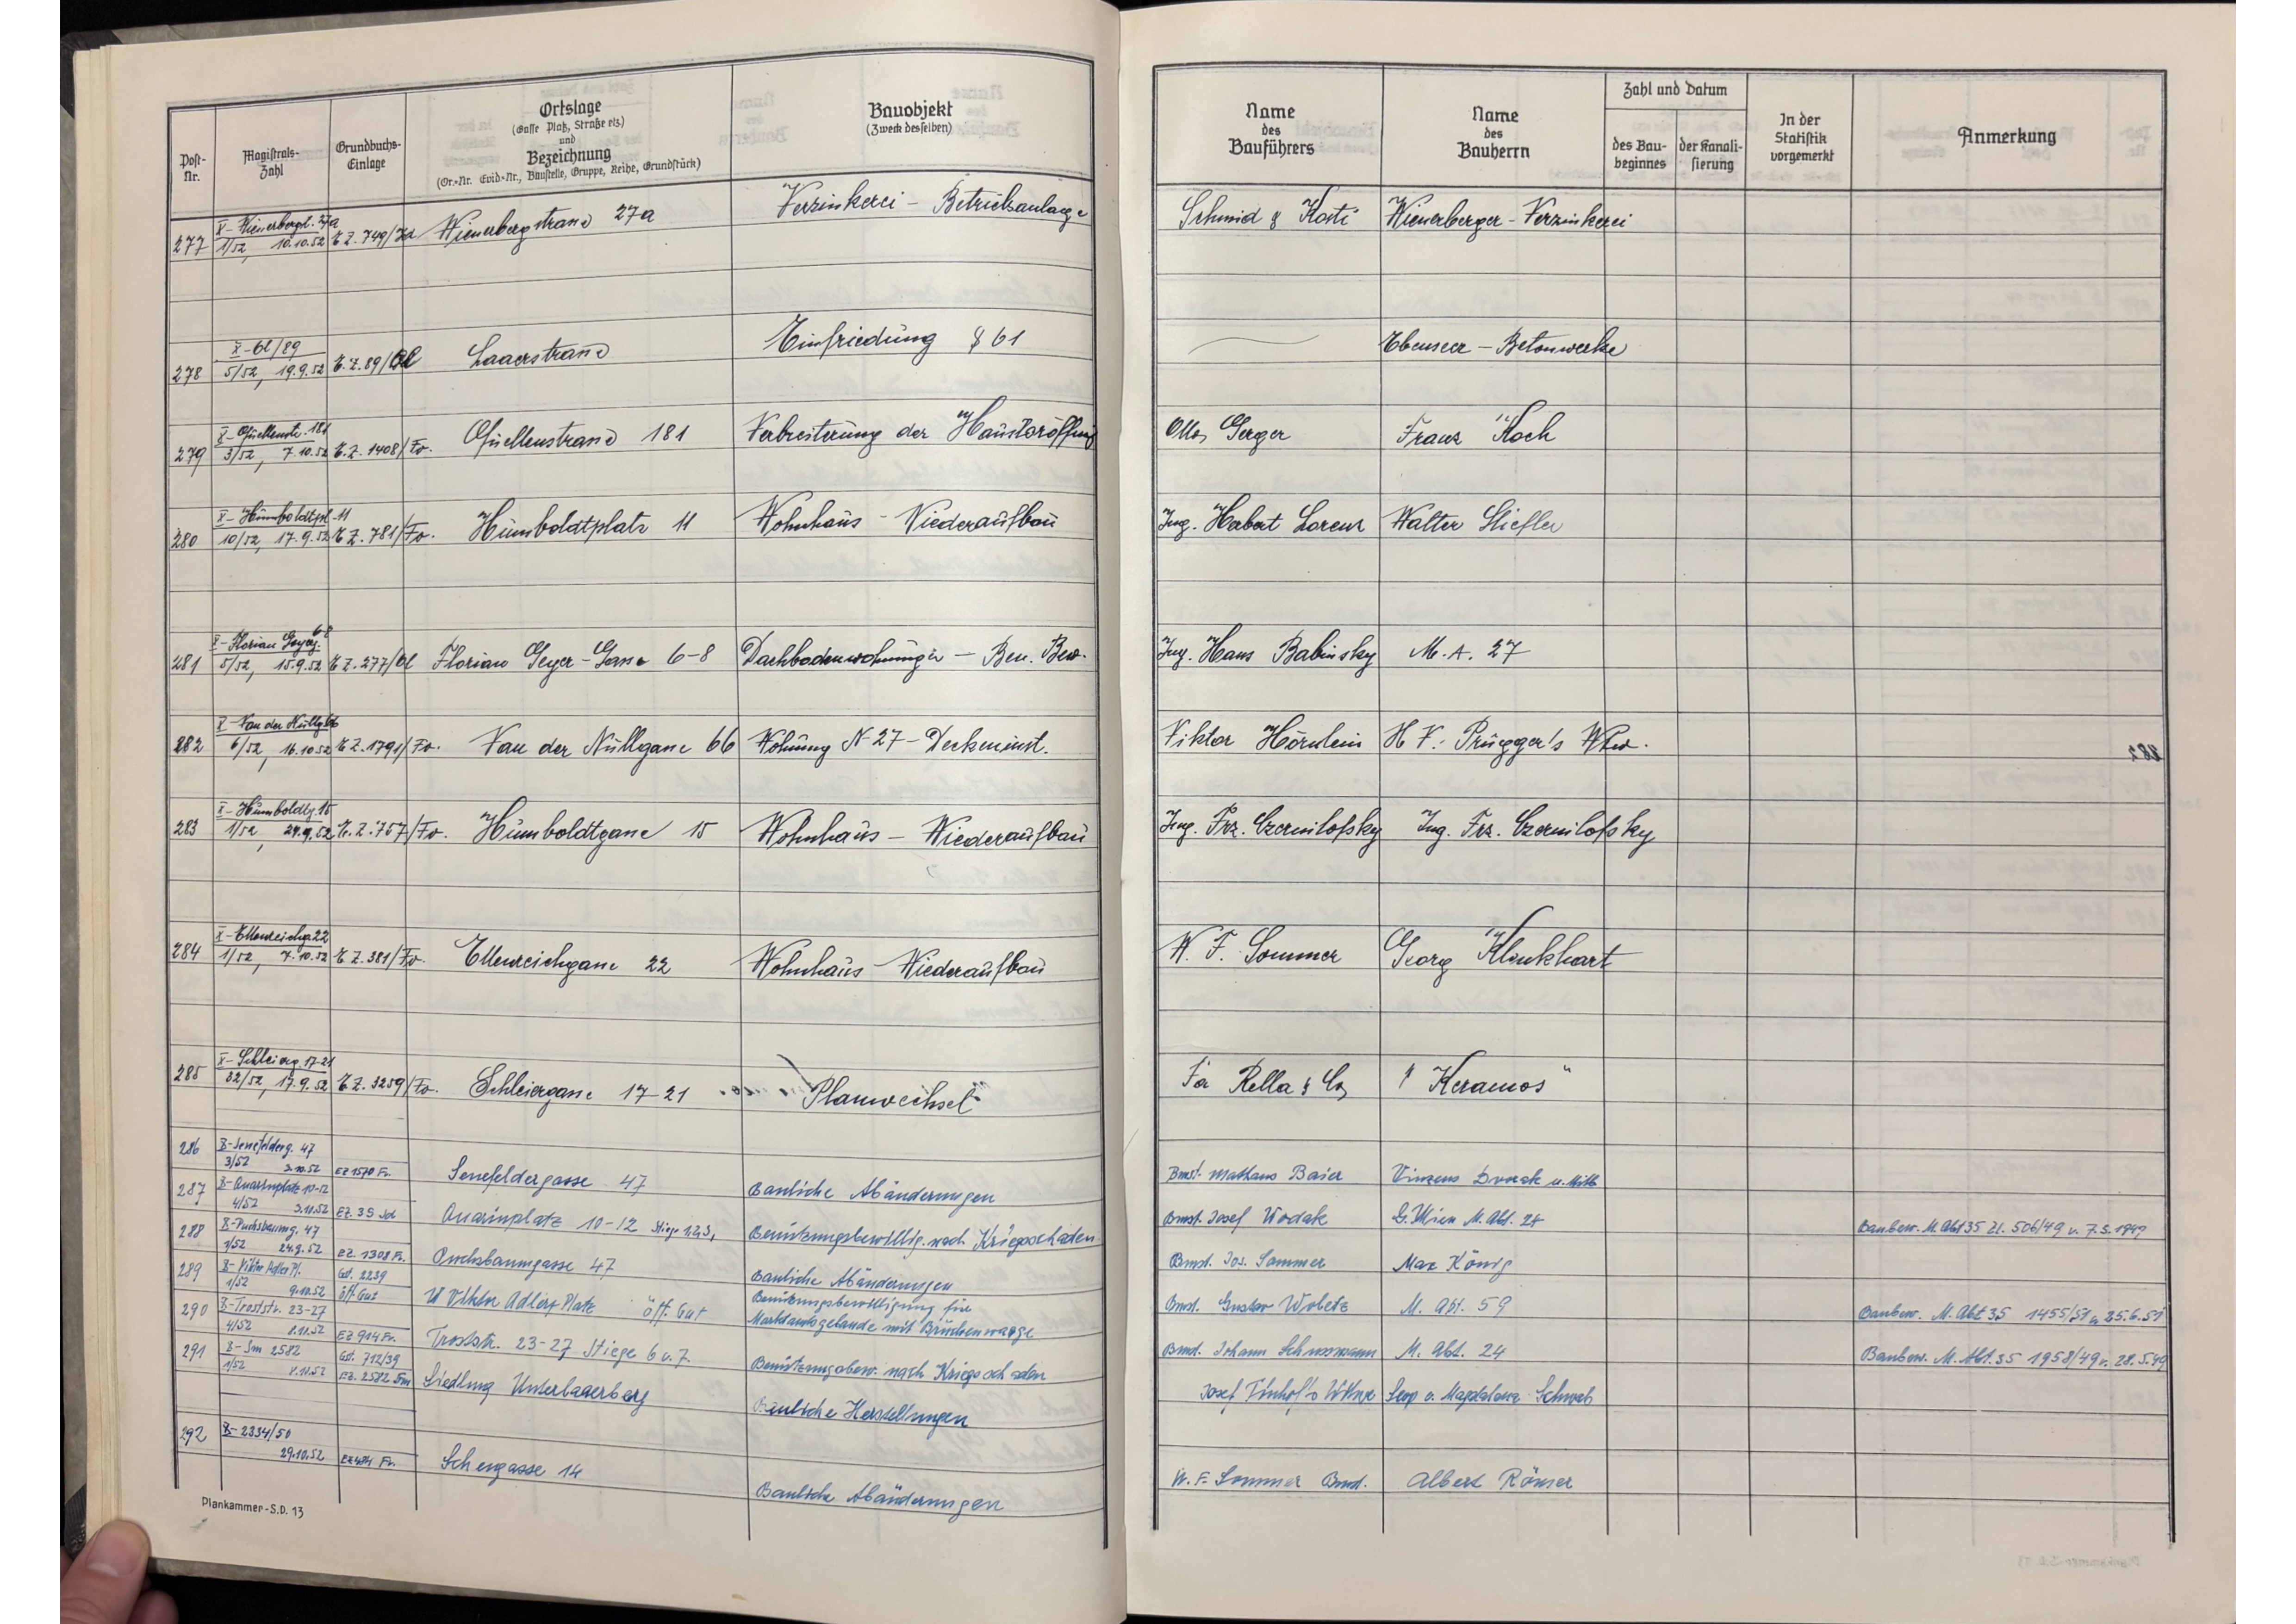 Post-Nr.
Magistrats-Zahl
Grundbuchs-Einlage
Ortslage
(Gasse Platz, Straße etz.)
und
Bezeichnung
(Or.-Nr. Evid.-Nr., Baustelle, Gruppe, Reihe, Grundstück)
Bauobjekt
(Zweck desselben)
Name des Bauführers
Name des Bauherrn
Zahl und Datum
des Baubeginnes
der Kanalisierung
In der Statistik vorgemerkt
Anmerkung
277 X-Wienerbergst. 27a 1/52, 10.10.52 E.Z. 749/Id Wienerbergstrasse 27a Verzinkerei - Betriebsanlage Schmid & Wienerberger-Verzinkerei
278 X-Ol/89 5/52, 19.9.52 E.Z. 89/Ol Laaerstrasse Einfriedung § 61 Ebenseer - Betonwerke
279 X-Quellenstr. 181 3/52, 7.10.52 E.Z. 1408/Fv. Quellenstrasse 181 Verbreiterung der Haustoröffnung Otto Gerger Franz Koch
280 X-Humboldtpl. 11 10/52, 17.9.52 E.Z. 781/Fv. Humboldtplatz 11 Wohnhaus - Wiederaufbau Ing. Herbert Lorenz Walter Stiefler
281 X-Florian Geyerg. 6-8 5/52, 15.9.52 E.Z. 277/Ol Florian Geyer-Gasse 6-8 Dachbodenwohnungen - Ben. Bew. Ing. Hans Babinsky M.A. 27
282 X-Van der Nüllg. 66 6/52, 16.10.52 E.Z. 1791/Fv. Van der Nüllgasse 66 Wohnung N-27 - Deckeninst. Viktor Hörnlein H.V. Prügger's
283 X-Humboldtg. 15 1/52, 24.9.52 E.Z. 757/Fv. Humboldtgasse 15 Wohnhaus - Wiederaufbau Ing. Frz. Czernilofsky Ing. Frz. Czernilofsky
284 X-Ettenreichg. 22 1/52, 7.10.52 E.Z. 381/Fv. Ettenreichgasse 22 Wohnhaus - Wiederaufbau W. F. Sommer Georg Klenkhart
285 X-Schleierg. 17-21 32/52, 17.9.52 E.Z. 3259/Fv. Schleiergasse 17-21 Planwechsel Fa Rella & Co „Keramos"
286 X-Senefelderg. 47 3/52 3.10.52 EZ 1570 Fv. Senefeldergasse 47 Bauliche Abänderungen Bmst. Mathäus Baier Vinzens Dvorak u. Mitb
287 X-Quarinplatz 10-12 4/52 3.10.52 EZ. 39 Id Quarinplatz 10-12 Stiege 1,2,3, Benützungsbewillig. nach Kriegsschaden Bmst. Josef Wodak G. Wien M. Abt. 24 Baubew. M. Abt 35 Zl. 506/49 v. 7.3.1949
288 X-Puchsbaumg. 47 1/52 24.9.52 EZ. 1308 Fv. Puchsbaumgasse 47 Bauliche Abänderungen Bmst. Jos. Sommer Max König
289 X-Viktor Adler Pl. 1/52 9.10.52 Gst. 2239 öff. Gut Viktor Adler Platz öff. Gut Benützungsbewilligung für
Marktamtsgebäude mit Brückenwaage Bmst. Gustav M. Abt. 59 Baubew. M. Abt 35 1455/51 v. 25.6.51
290 X-Troststr. 23-27 4/52 8.10.52 EZ 914 Fv. Troststr. 23-27 Stiege 6 u. 7 Benützungsbew. nach Kriegsschaden Bmst. Johann M. Abt. 24 Baubew. M. Abt. 35 1958/49 v. 28.5.49
291 X-Sm 2582 1/52 8.10.52 Gst. 712/39 EZ. 2582 Sm Siedlung Unterlaaerberg Bauliche Herstellungen Josef Leop u. Magdalena Schwab
292 X-2334/50 29.10.52 EZ 484 Fv. Schengasse 14 Bauliche Abänderungen W. F. Sommer Bmst. Albert Römer
Plankammer-S.D. 13